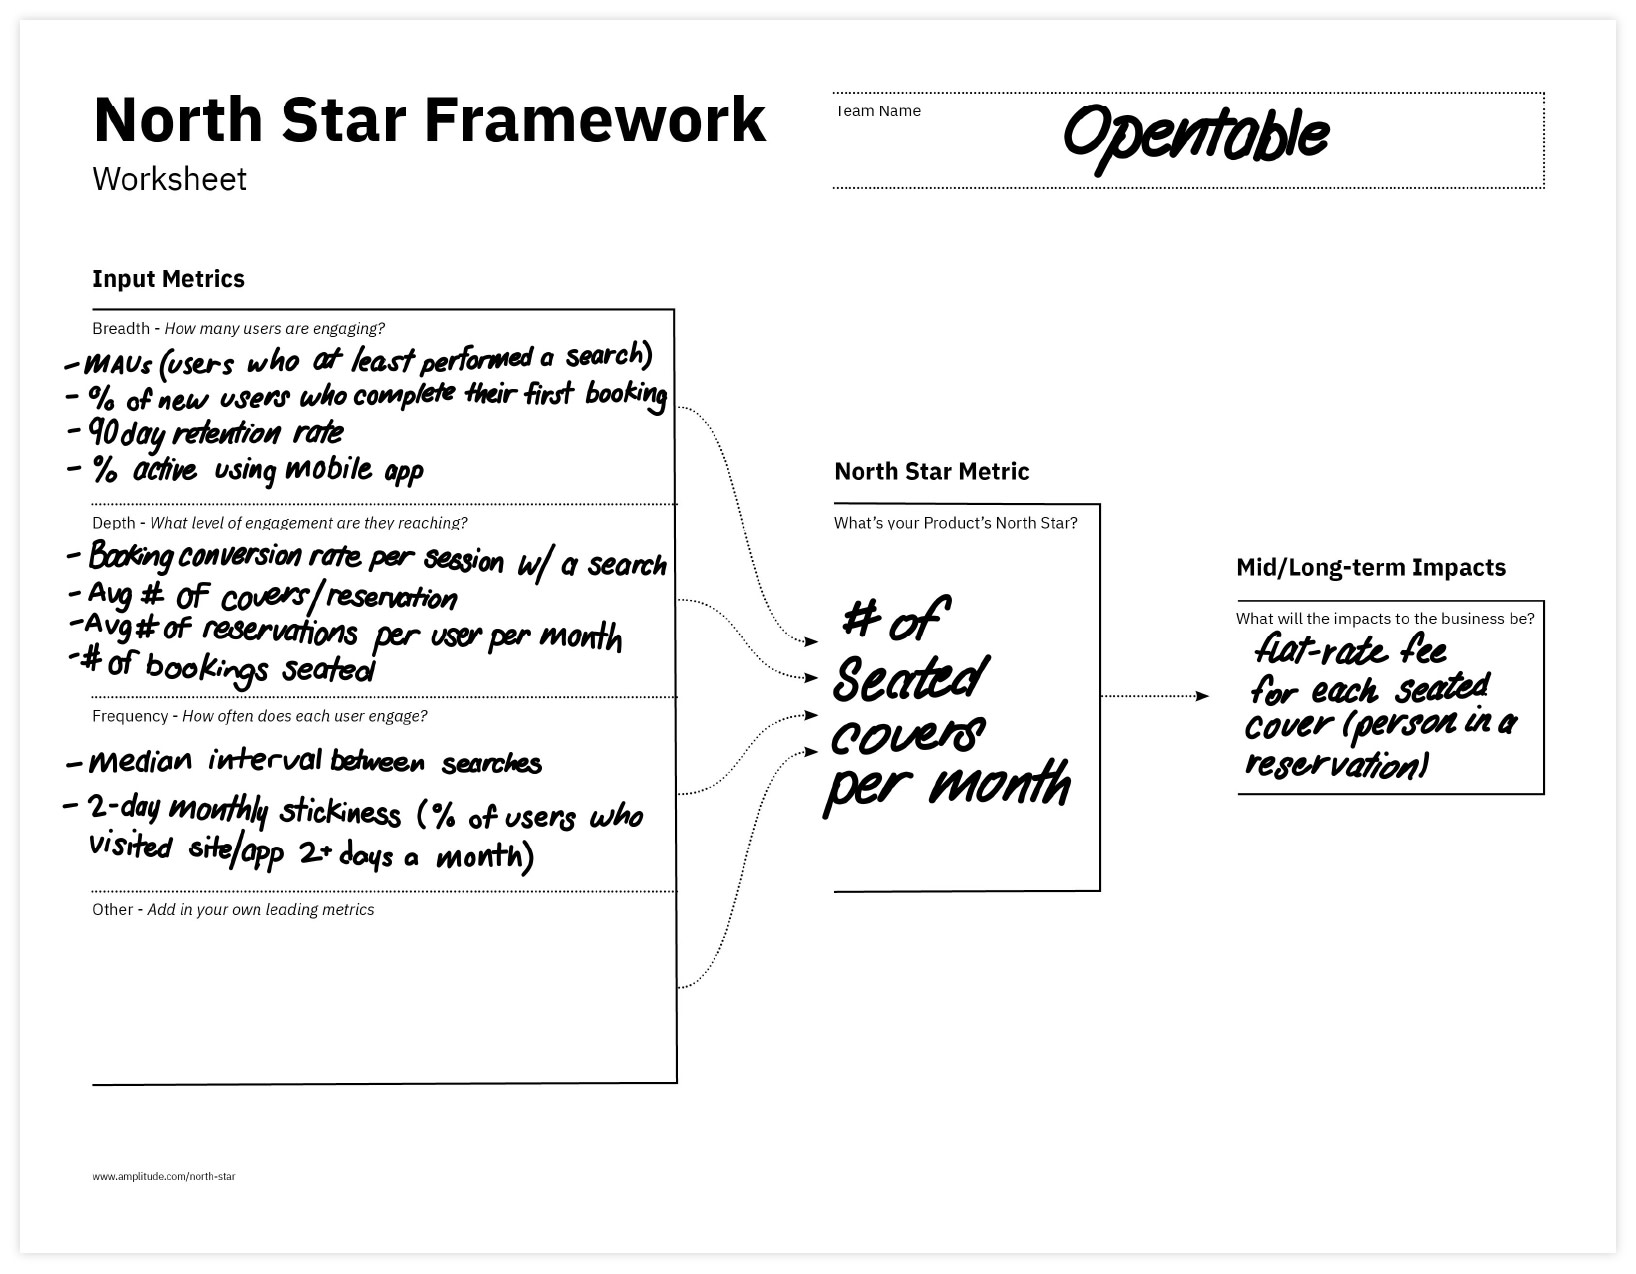 North Star Framework
Worksheet
Team Name
Opentable
Input Metrics
Breadth - How many users are engaging?
- MAUs (users who at least performed a search)
- % of new users who complete their first booking
- 90 day retention rate
- % active using mobile app
Depth - What level of engagement are they reaching?
- Booking conversion rate per session w/ a search
- Avg # of covers/reservation
- Avg # of reservations per user per month
- # of bookings seated
Frequency - How often does each user engage?
- Median interval between searches
- 2-day monthly stickiness (% of users who
visited site/app 2+ days a month)
Other - Add in your own leading metrics
North Star Metric
What's your Product's North Star?
# of
Seated
covers
per month
Mid/Long-term Impacts
What will the impacts to the business be?
flat-rate fee
for each seated
cover (person in a
reservation)
www.amplitude.com/north-star